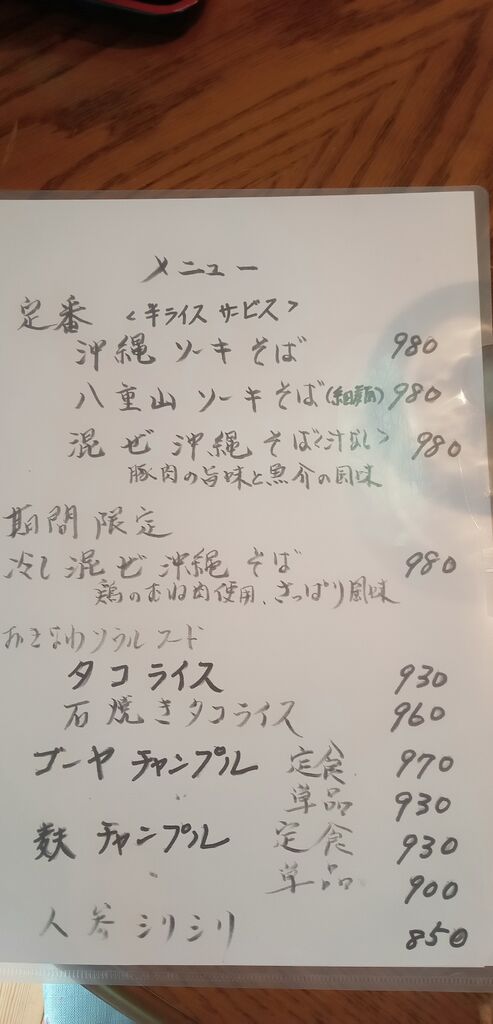 メニュー
定番 <半ライスサービス>
沖縄ソーキそば 980
八重山ソーキそば(細麺) 980
混ぜ沖縄そば<汁なし> 980
豚肉の旨味と魚介の風味
期間限定
冷し混ぜ沖縄そば 980
鶏のむね肉使用、さっぱり風味
おきなわソウルフード
タコライス 930
石焼きタコライス 960
ゴーヤチャンプル 定食 970
単品 930
麩チャンプル 定食 930
単品 900
人参シリシリ 850